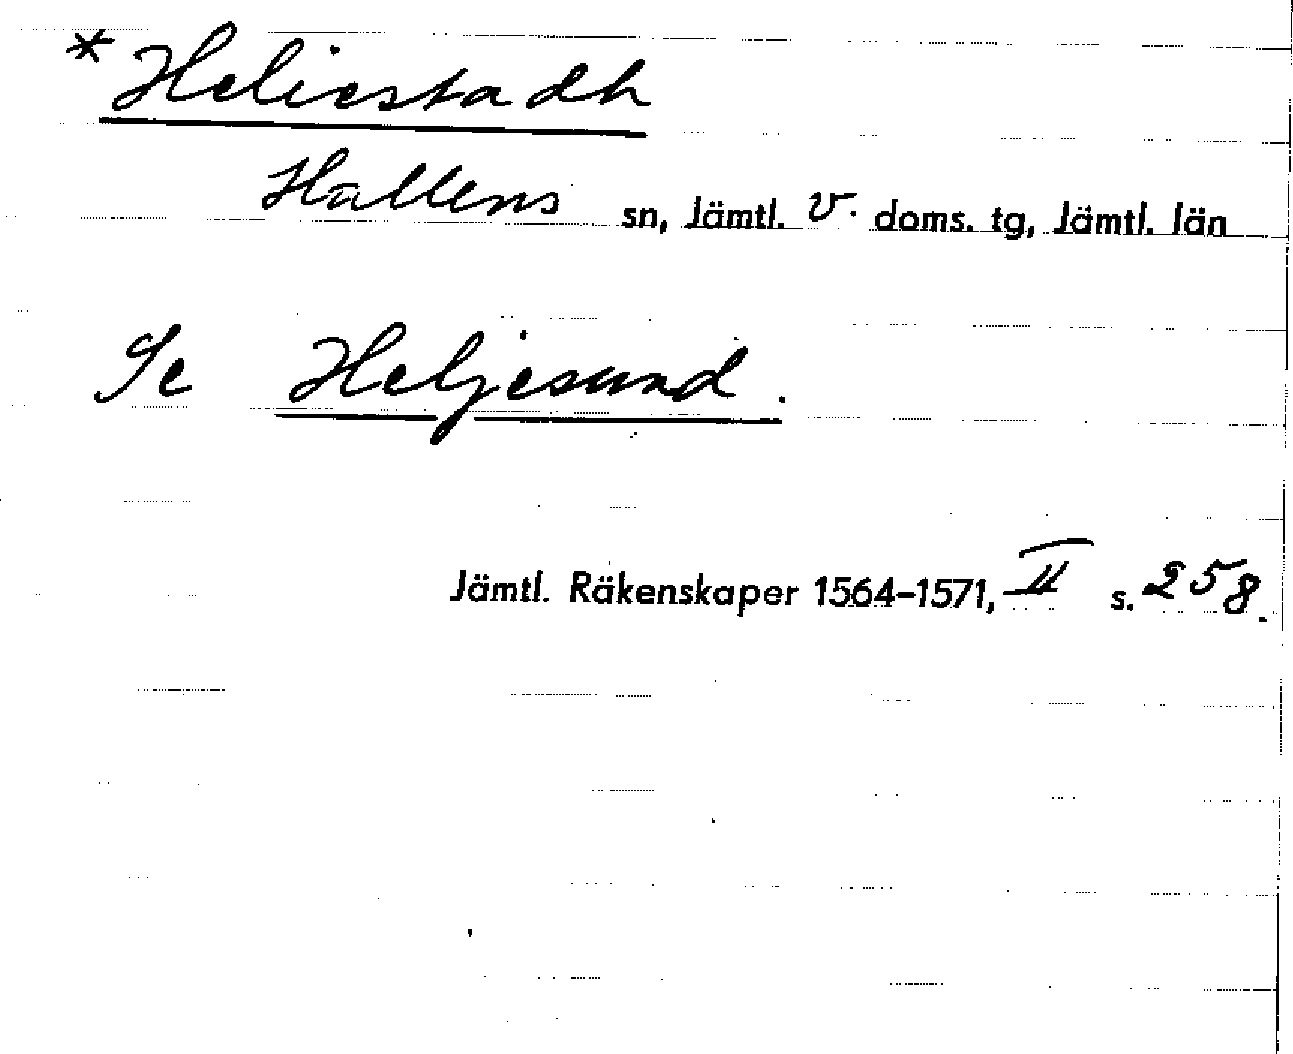 * Heliestadh
Hallens sn, Jämtl. v. doms. tg, Jämtl. län
Se Heljesund.
Jämtl. Räkenskaper 1564-1571, II s. 258.